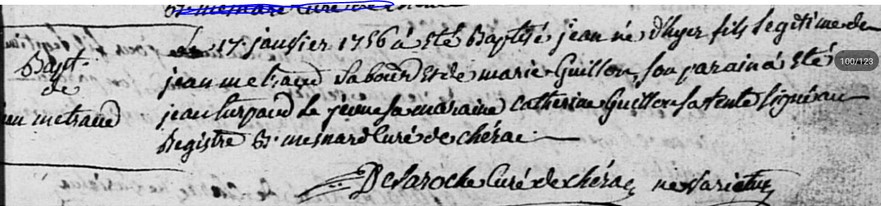 St. mesnard Curé de
Le 17 janvier 1756 a été Baptisé jean né d'hyer fils legitime de
Bapt.
de
jean metraud
jean metraud laboureur et de marie Guillon, son parain a été
jean surpaud Le jeune sa maraine Catherine Guillon sa tente signé au
Registre St. mesnard Curé de chérac
Delaroche Curé de chérac ne varietur
100/123